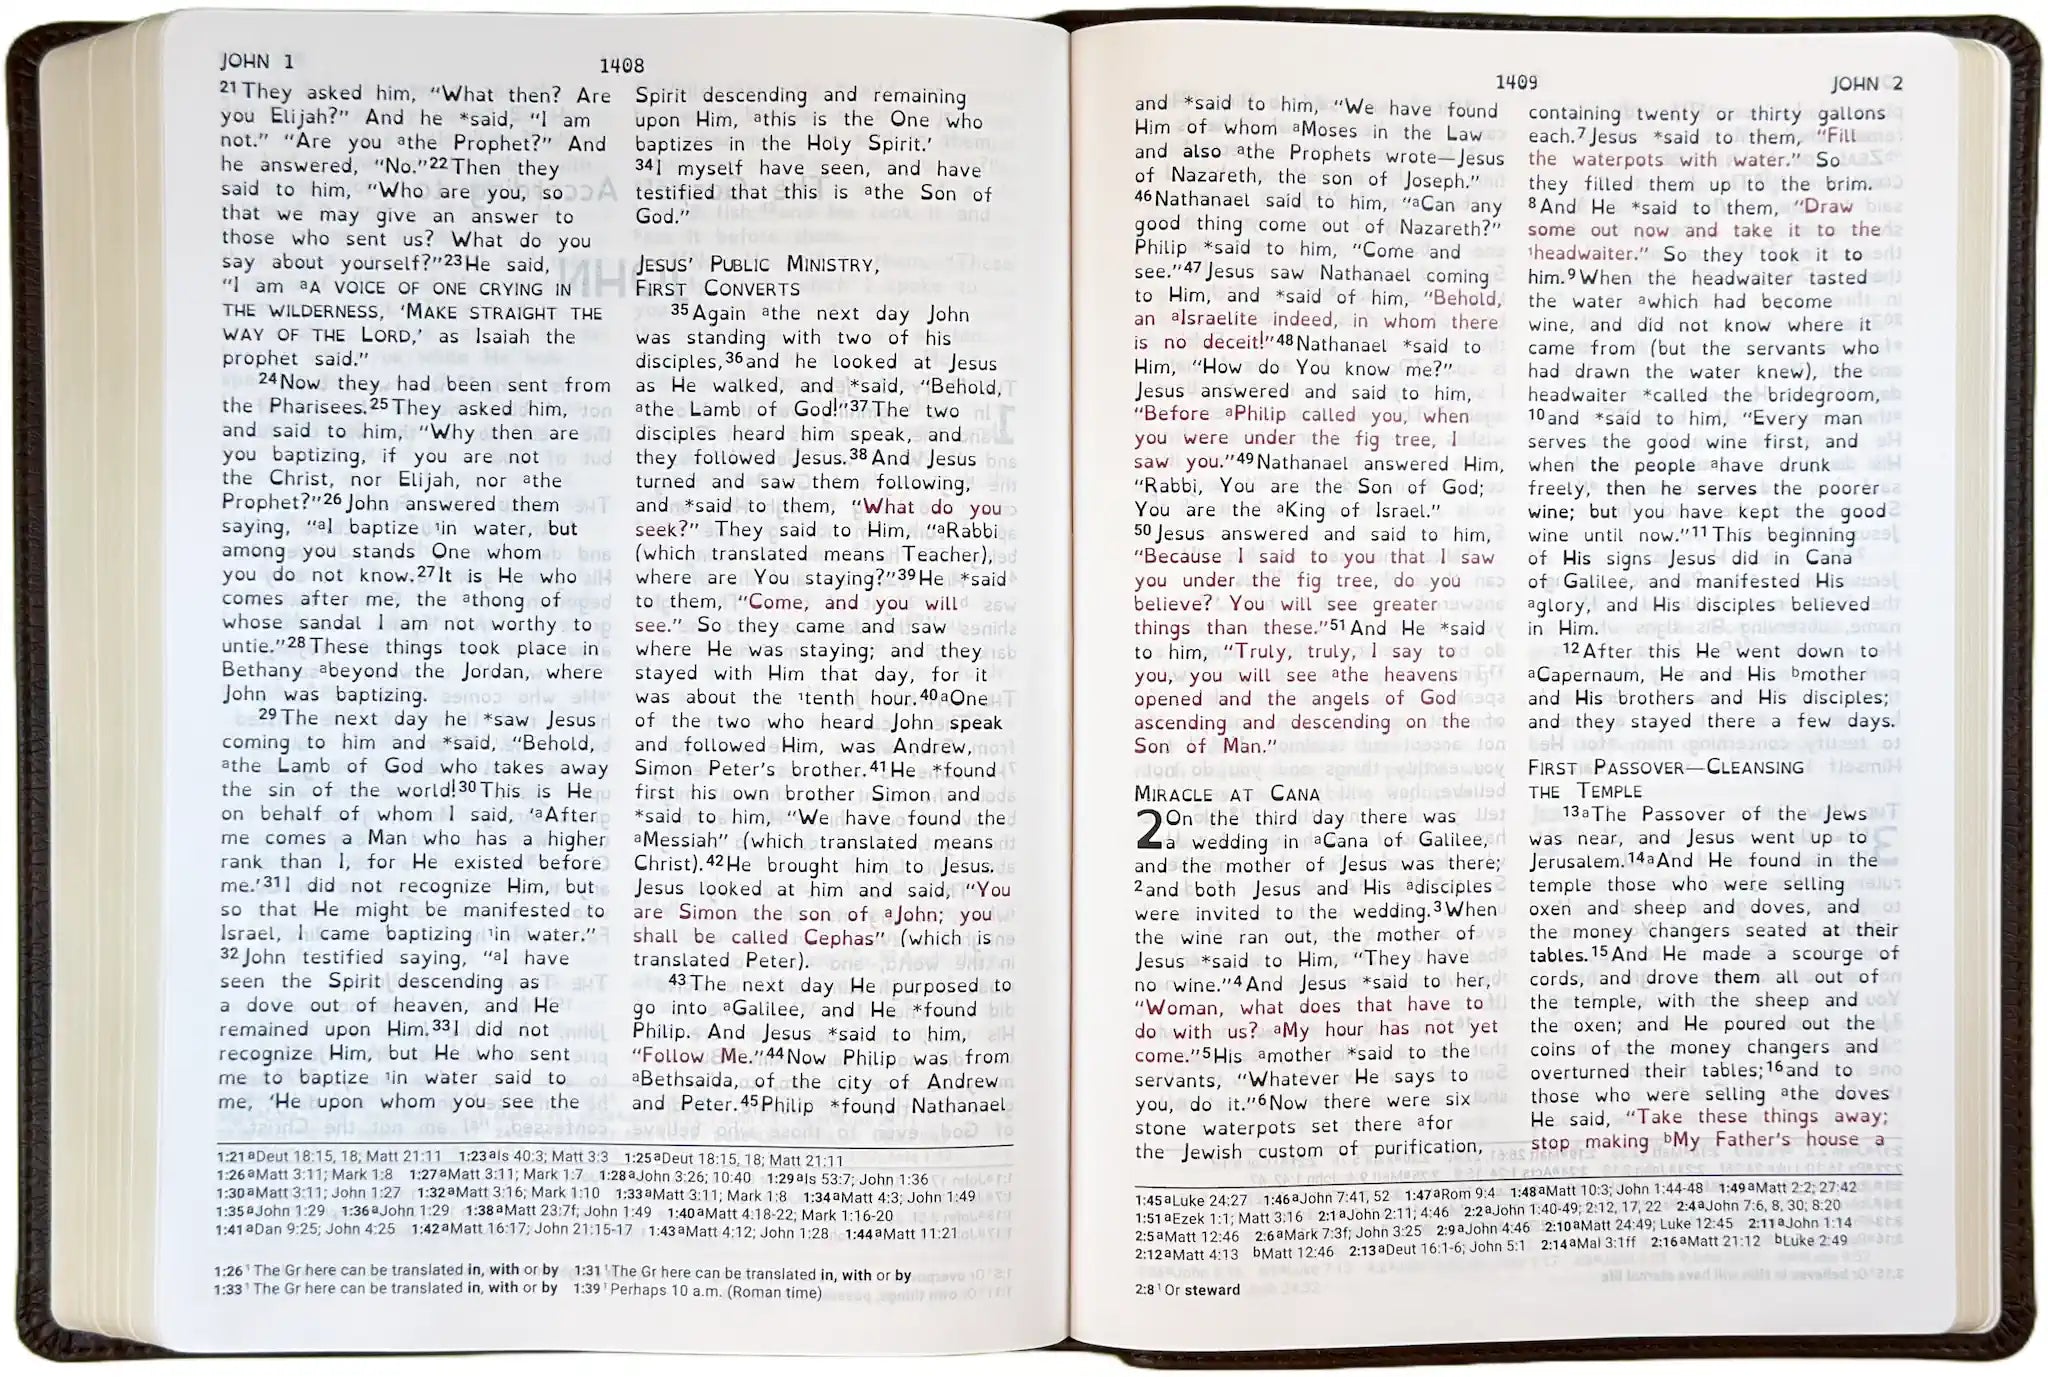 JOHN 1
1408
21They asked him, “What then? Are
you Elijah?” And he *said, “I am
not.” “Are you athe Prophet?” And
he answered, “No.”22Then they
said to him, “Who are you, so
that we may give an answer to
those who sent us? What do you
say about yourself?”23He said,
“I am aA VOICE OF ONE CRYING IN
THE WILDERNESS, ‘MAKE STRAIGHT THE
WAY OF THE LORD,’ as Isaiah the
prophet said.”
24Now they had been sent from
the Pharisees.25They asked him,
and said to him, “Why then are
you baptizing, if you are not
the Christ, nor Elijah, nor athe
Prophet?”26John answered them
saying, “aI baptize 1in water, but
among you stands One whom
you do not know.27It is He who
comes after me, the athong of
whose sandal I am not worthy to
untie.”28These things took place in
Bethany abeyond the Jordan, where
John was baptizing.
29The next day he *saw Jesus
coming to him and *said, “Behold,
athe Lamb of God who takes away
the sin of the world!30This is He
on behalf of whom I said, ‘aAfter
me comes a Man who has a higher
rank than I, for He existed before
me.’31I did not recognize Him, but
so that He might be manifested to
Israel, I came baptizing 1in water.”
32John testified saying, “aI have
seen the Spirit descending as
a dove out of heaven, and He
remained upon Him.33I did not
recognize Him, but He who sent
me to baptize 1in water said to
me, ‘He upon whom you see the
Spirit descending and remaining
upon Him, athis is the One who
baptizes in the Holy Spirit.’
34I myself have seen, and have
testified that this is athe Son of
God.”
JESUS’ PUBLIC MINISTRY,
FIRST CONVERTS
35Again athe next day John
was standing with two of his
disciples,36and he looked at Jesus
as He walked, and *said, “Behold,
athe Lamb of God!”37The two
disciples heard him speak, and
they followed Jesus.38And Jesus
turned and saw them following,
and *said to them, “What do you
seek?” They said to Him, “aRabbi
(which translated means Teacher),
where are You staying?”39He *said
to them, “Come, and you will
see.” So they came and saw
where He was staying; and they
stayed with Him that day, for it
was about the 1tenth hour.40aOne
of the two who heard John speak
and followed Him, was Andrew,
Simon Peter’s brother.41He *found
first his own brother Simon and
*said to him, “We have found the
aMessiah” (which translated means
Christ).42He brought him to Jesus.
Jesus looked at him and said, “You
are Simon the son of aJohn; you
shall be called Cephas” (which is
translated Peter).
43The next day He purposed to
go into aGalilee, and He *found
Philip. And Jesus *said to him,
“Follow Me.”44Now Philip was from
aBethsaida, of the city of Andrew
and Peter.45Philip *found Nathanael
1:21aDeut 18:15, 18; Matt 21:11 1:23aIs 40:3; Matt 3:3 1:25aDeut 18:15, 18; Matt 21:11
1:26aMatt 3:11; Mark 1:8 1:27aMatt 3:11; Mark 1:7 1:28aJohn 3:26; 10:40 1:29aIs 53:7; John 1:36
1:30aMatt 3:11; John 1:27 1:32aMatt 3:16; Mark 1:10 1:33aMatt 3:11; Mark 1:8 1:34aMatt 4:3; John 1:49
1:35aJohn 1:29 1:36aJohn 1:29 1:38aMatt 23:7f; John 1:49 1:40aMatt 4:18-22; Mark 1:16-20
1:41aDan 9:25; John 4:25 1:42aMatt 16:17; John 21:15-17 1:43aMatt 4:12; John 1:28 1:44aMatt 11:21
1:26 1The Gr here can be translated in, with or by 1:31 1The Gr here can be translated in, with or by
1:33 1The Gr here can be translated in, with or by 1:39 1Perhaps 10 a.m. (Roman time)
1409
JOHN 2
and *said to him, “We have found
Him of whom aMoses in the Law
and also athe Prophets wrote—Jesus
of Nazareth, the son of Joseph.”
46Nathanael said to him, “aCan any
good thing come out of Nazareth?”
Philip *said to him, “Come and
see.”47Jesus saw Nathanael coming
to Him, and *said of him, “Behold,
an aIsraelite indeed, in whom there
is no deceit!”48Nathanael *said to
Him, “How do You know me?”
Jesus answered and said to him,
“Before aPhilip called you, when
you were under the fig tree, I
saw you.”49Nathanael answered Him,
“Rabbi, You are the Son of God;
You are the aKing of Israel.”
50Jesus answered and said to him,
“Because I said to you that I saw
you under the fig tree, do you
believe? You will see greater
things than these.”51And He *said
to him, “Truly, truly, I say to
you, you will see athe heavens
opened and the angels of God
ascending and descending on the
Son of Man.”
MIRACLE AT CANA
2On the third day there was
a wedding in aCana of Galilee,
and the mother of Jesus was there;
2and both Jesus and His adisciples
were invited to the wedding.3When
the wine ran out, the mother of
Jesus *said to Him, “They have
no wine.”4And Jesus *said to her,
“Woman, what does that have to
do with us? aMy hour has not yet
come.”5His amother *said to the
servants, “Whatever He says to
you, do it.”6Now there were six
stone waterpots set there afor
the Jewish custom of purification,
containing twenty or thirty gallons
each.7Jesus *said to them, “Fill
the waterpots with water.” So
they filled them up to the brim.
8And He *said to them, “Draw
some out now and take it to the
1headwaiter.” So they took it to
him.9When the headwaiter tasted
the water awhich had become
wine, and did not know where it
came from (but the servants who
had drawn the water knew), the
headwaiter *called the bridegroom,
10and *said to him, “Every man
serves the good wine first, and
when the people ahave drunk
freely, then he serves the poorer
wine; but you have kept the good
wine until now.”11This beginning
of His signs Jesus did in Cana
of Galilee, and manifested His
aglory, and His disciples believed
in Him.
12After this He went down to
aCapernaum, He and His bmother
and His brothers and His disciples;
and they stayed there a few days.
FIRST PASSOVER—CLEANSING
THE TEMPLE
13aThe Passover of the Jews
was near, and Jesus went up to
Jerusalem.14aAnd He found in the
temple those who were selling
oxen and sheep and doves, and
the money changers seated at their
tables.15And He made a scourge of
cords, and drove them all out of
the temple, with the sheep and
the oxen; and He poured out the
coins of the money changers and
overturned their tables;16and to
those who were selling athe doves
He said, “Take these things away;
stop making bMy Father’s house a
1:45aLuke 24:27 1:46aJohn 7:41, 52 1:47aRom 9:4 1:48aMatt 10:3; John 1:44-48 1:49aMatt 2:2; 27:42
1:51aEzek 1:1; Matt 3:16 2:1aJohn 2:11; 4:46 2:2aJohn 1:40-49; 2:12, 17, 22 2:4aJohn 7:6, 8, 30; 8:20
2:5aMatt 12:46 2:6aMark 7:3f; John 3:25 2:9aJohn 4:46 2:10aMatt 24:49; Luke 12:45 2:11aJohn 1:14
2:12aMatt 4:13 bMatt 12:46 2:13aDeut 16:1-6; John 5:1 2:14aMal 3:1ff 2:16aMatt 21:12 bLuke 2:49
2:8 1Or steward